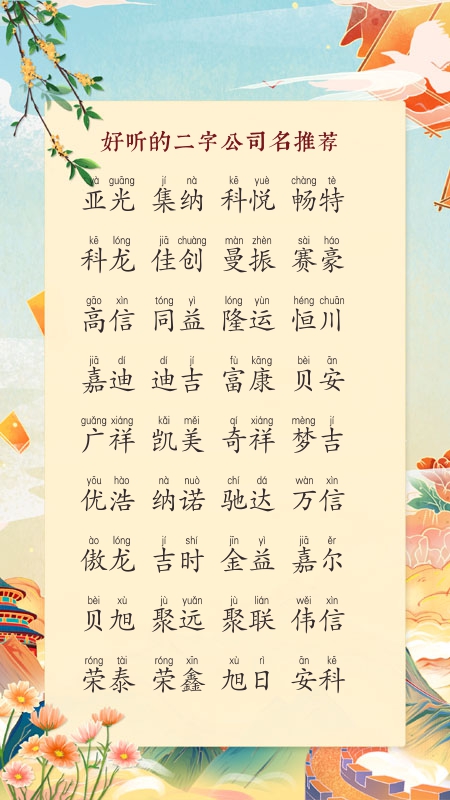 好听的二字公司名推荐
yà guāng jí nà kē yuè chàng tè
亚光 集纳 科悦 畅特
kē lóng jiā chuàng màn zhèn sài háo
科龙 佳创 曼振 赛豪
gāo xìn tóng yì lóng yùn héng chuān
高信 同益 隆运 恒川
jiā dí dí jí fù kāng bèi ān
嘉迪 迪吉 富康 贝安
guǎng xiáng kǎi měi qí xiáng mèng jí
广祥 凯美 奇祥 梦吉
yōu hào nà nuò chí dá wàn xìn
优浩 纳诺 驰达 万信
ào lóng jí shí jīn yì jiā ěr
傲龙 吉时 金益 嘉尔
bèi xù jù yuǎn jù lián wěi xìn
贝旭 聚远 聚联 伟信
róng tài róng xīn xù rì ān kē
荣泰 荣鑫 旭日 安科